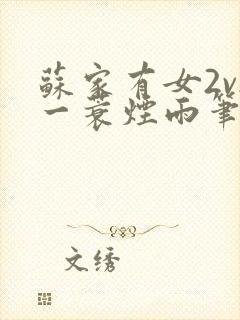 蘇家有女2v
一蓑煙雨筆
文绣